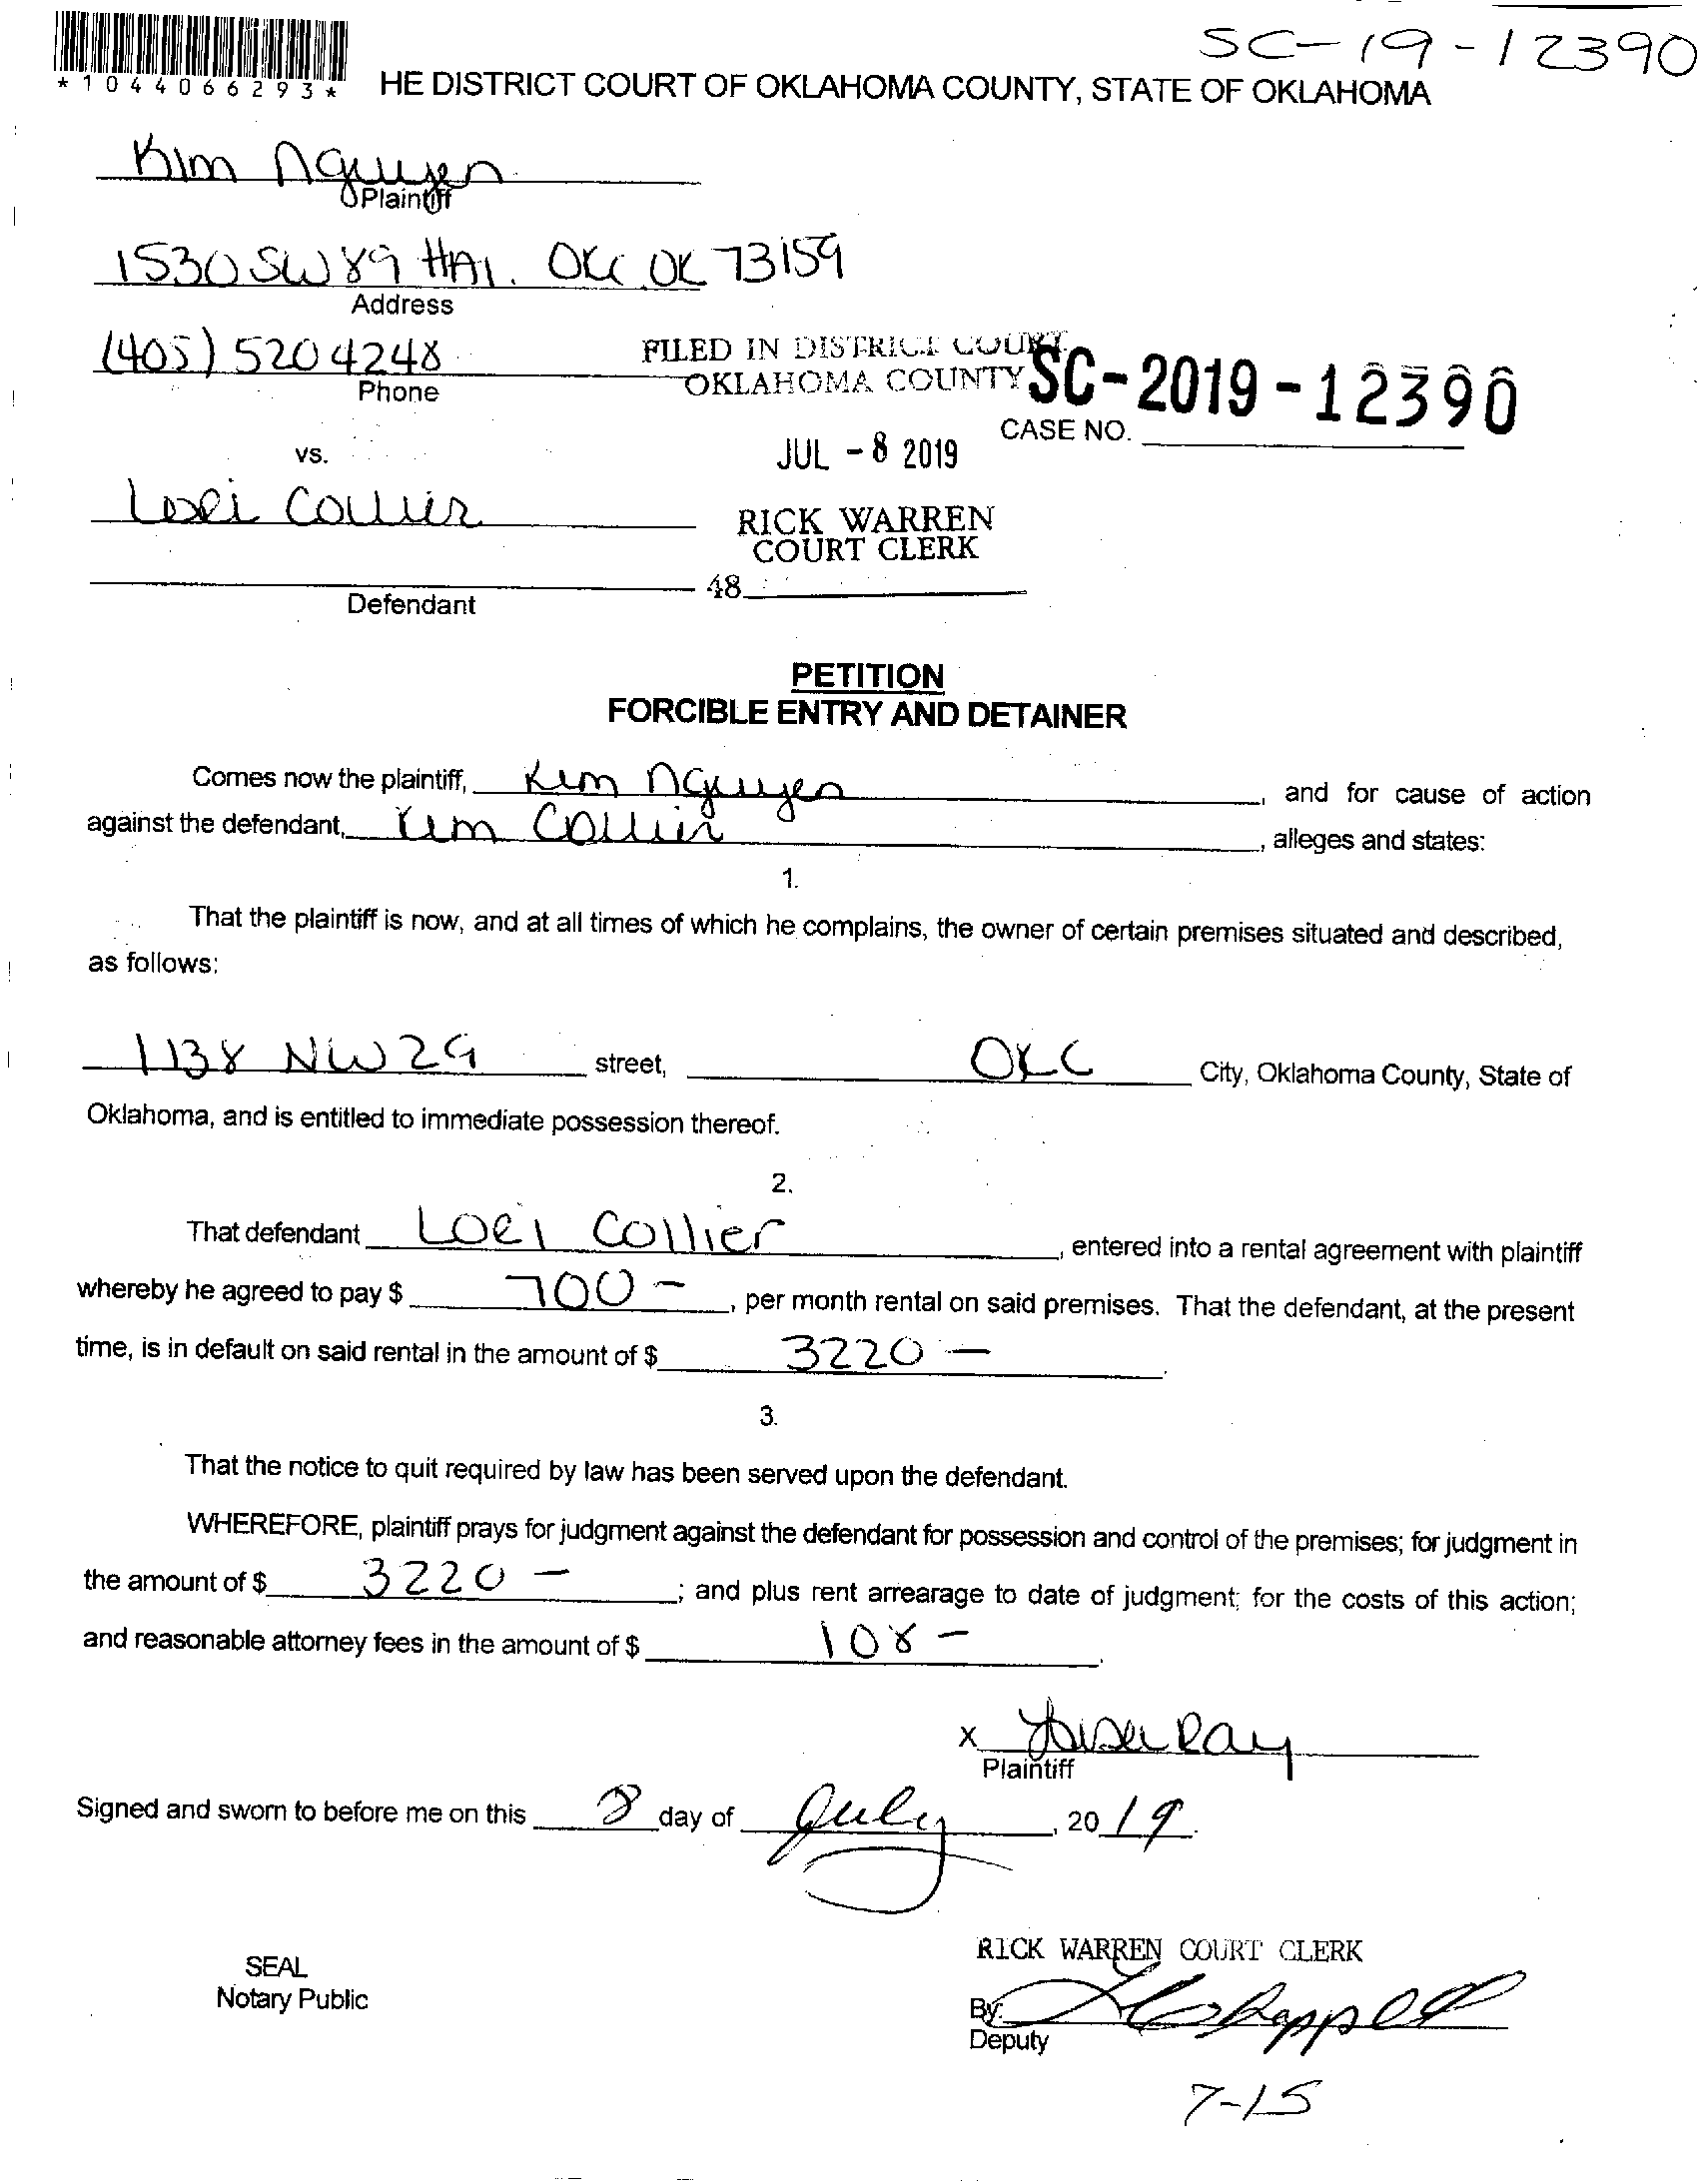 SC-19-12390
*1044066293*
HE DISTRICT COURT OF OKLAHOMA COUNTY, STATE OF OKLAHOMA
Kim Nguyen
Plaintiff
1530 SW 89 OKC OK 73159
Address
(405) 520 4248
Phone
FILED IN DISTRICT COURT
OKLAHOMA COUNTY
SC-2019-12390
CASE NO.
JUL - 8 2019
vs.
Lori Collier
RICK WARREN
COURT CLERK
48
Defendant
PETITION
FORCIBLE ENTRY AND DETAINER
Comes now the plaintiff, Kim Nguyen, and for cause of action
against the defendant, Kim Collier, alleges and states:
1.
That the plaintiff is now, and at all times of which he complains, the owner of certain premises situated and described,
as follows:
1138 NW 29 street, OKC City, Oklahoma County, State of
Oklahoma, and is entitled to immediate possession thereof.
2.
That defendant LORI Collier, entered into a rental agreement with plaintiff
whereby he agreed to pay $ 700 -, per month rental on said premises. That the defendant, at the present
time, is in default on said rental in the amount of $ 3220 -.
3.
That the notice to quit required by law has been served upon the defendant.
WHEREFORE, plaintiff prays for judgment against the defendant for possession and control of the premises; for judgment in
the amount of $ 3220 -; and plus rent arrearage to date of judgment; for the costs of this action;
and reasonable attorney fees in the amount of $ 108 -.
X Ray
Plaintiff
Signed and sworn to before me on this 8 day of July, 2019.
RICK WARREN COURT CLERK
SEAL
Notary Public
By:
Deputy
7-15